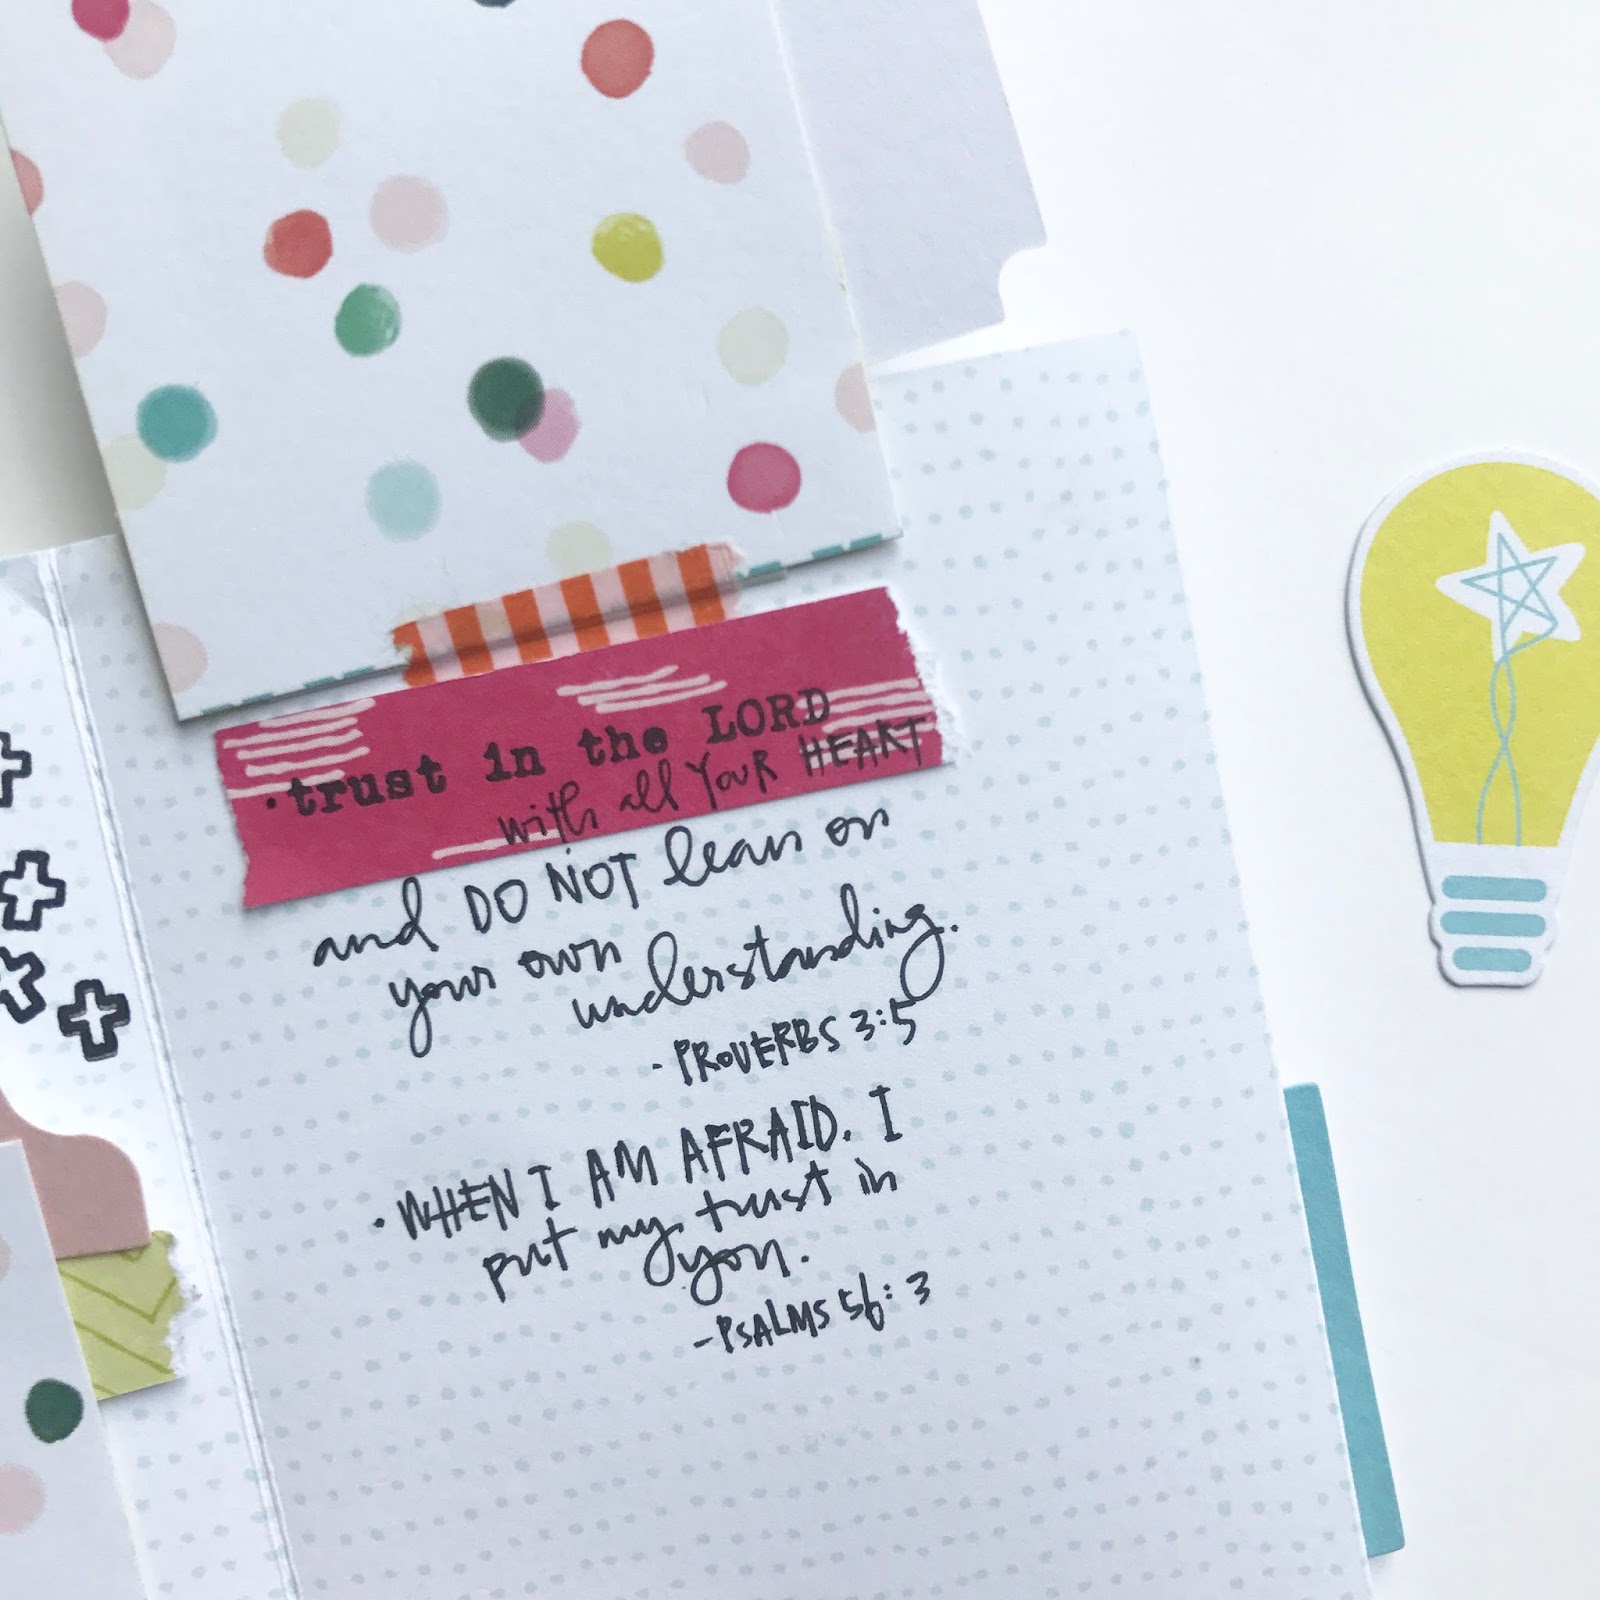 ·trust in the LORD
with all YOUR HEART
and DO NOT lean on
your own
understanding.
- PROVERBS 3:5
• WHEN I AM AFRAID. I
put my trust in
you.
- PSALMS 56:3